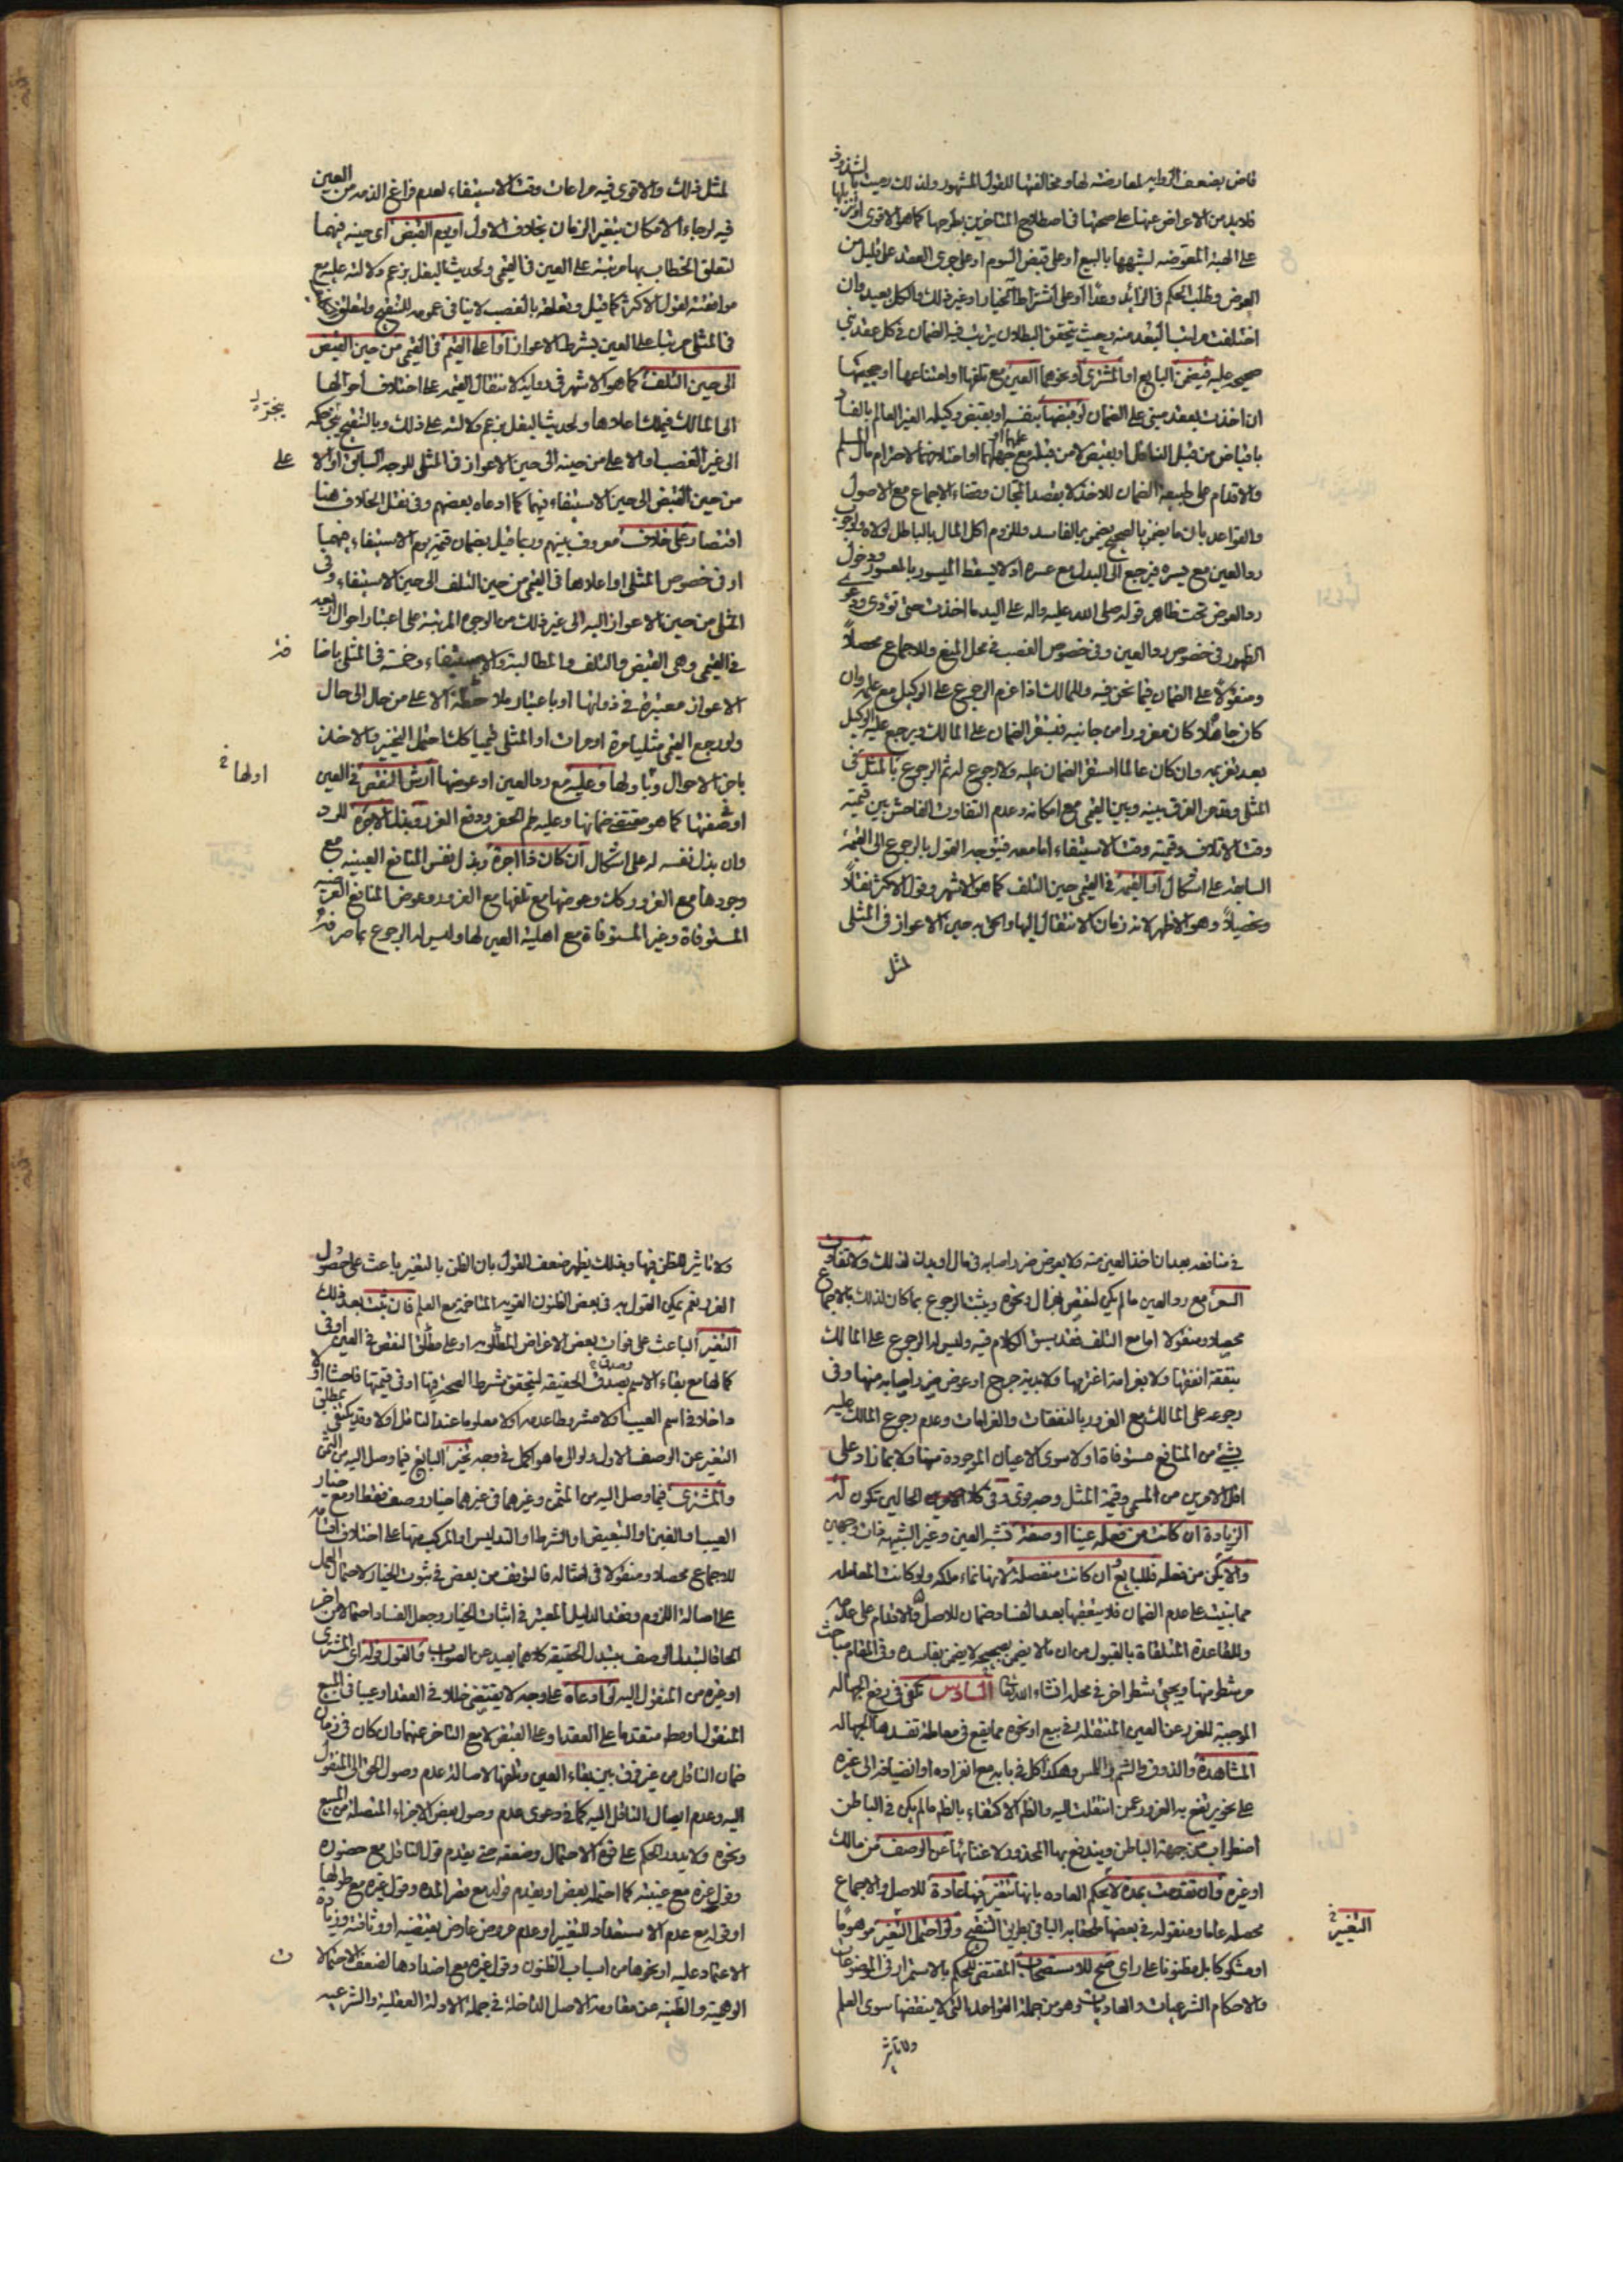 قاض بضعف الروايه لمعارضته لها ومخالفتها للقول المشهور ولذلك رميت بالشذوذ
فلابد من الاعراض عنها على صحتها في اصطلاح المتاخرين بطرحها كما هو الاقوى او تنزيلها
على الهبة المعوضه لشبهها بالبيع او على قبض السوم او على جرى العقد على قليل من
العوض وطلب الحكم في الزائد وعدا او على اشتراط الخيار او غير ذلك والكل بعيد وان
اختلفت مراتب البعد منه وحيث يتحقق البطلان يترتب فيه الضمان في كل عقد بنى
صحيحه عليه فيضمن البايع او المشترى او نحوهما العين مع تلفها او امتناعها او حجيتها
ان اخذت بعقد مبني على الضمان لو قبضها بنفسه او بقبض وكيله الغير العالم بالفساد
باقباض من قبل الناقل او بقبض لا من قبله مع جهلهما او علمهما او اختلافهما لاحترام مال المسلم
والاقدام على طبيعة الضمان للاخذ لا بقصد المجان وقضاء الاجماع مع الاصول
والقواعد بان ما يضمن بالصحيح يضمن بالفاسد وللزوم اكل المال بالباطل لولاه ولوجوب
رد العين مع يسره فيرجع الى البدل مع عسره اذ لا يسقط الميسور بالمعسور ودخول
رد العوض تحت ظاهر قوله صلى الله عليه واله على اليد ما اخذت حتى تؤدى ودعوى
الظهور في خصوص رد العين وفي خصوص الغصب في محل المنع وللاجماع محصلاً
ومنقولا على الضمان فيما نحن فيه وللمالك اذا غرم الرجوع على الوكيل مع علمه وان
كان جاهلا كان مغرورا من جانبه فيستقر الضمان على المالك ويرجع عليه الوكيل
بعد تغريمه وان كان عالما استقر الضمان عليه ولا رجوع له ثم الرجوع بالمثل في
المثلى وقد مر الفرق بينه وبين القيمى مع امكانه وعدم التفاوت الفاحش بين قيمته
وقت الاتلاف وقيمته وقت الاستيفاء اما معه فيتوجه القول بالرجوع الى القيمة
السابقه على اشكال او القيمه في القيمى حين التلف كما هو الاشهر وقول الاكثر نقلاً
وتحصيلاً وهو الاظهر لانه زمان الانتقال اليها والحق به حين الاعواز في المثلى
لمثل
لمثل ذلك والاقوى فيه مراعات وقت الاستيفاء لعدم فراغ الذمه من العين
فيه لرجاء الامكان بتغير الزمان بخلاف الاول او يوم القبض اى حينه فيهما
لتعلق الخطاب بها مرتبة على العين في القيمى ولحديث البغل بزعم دلالته عليه مع
موافقته لقول الاكثر كما قيل وتعلقه بالغصب لا ينافى عمومه للتنقيح ولتعلق
في المثلى مرتبا على العين بشرط الاعواز او اعلا القيم في القيمى من حين القبض
الى حين التلف كما هو الاشهر في رواية لانتقال القيمه على اختلاف احوالها
الى المالك فيملك اعلاها ولحديث البغل بزعم دلالته على ذلك وبالتنقيح ينجر حكمه
الى غير الغصب اولا على من حينه الى حين الاعواز في المثلى للوجه السابق اولا
على
من حين القبض الى حين الاستيفاء فيهما كما ادعاه بعضهم وفي نقل الخلاف هنا
اقتصار على خلاف معروف بينهم وربما قيل بضمان قيمة يوم الاستيفاء فيهما
او في خصوص المثلى او اعلاها في القيمى من حين التلف الى حين الاستيفاء وفى
المثلى من حين الاعواز اليه الى غير ذلك من الوجوه المرتبة على اعتبار احوال اربعه
في القيمى وهى القبض والتلف والمطالبة والاستيفاء وخمسة في المثلى باضا
فة
الاعواز معتبرة في ذواتها او باعتبار ملاحظة الاعلى من حال الى حال
ولو رجع القيمى مثليا مرة او مرات او المثلى قيميا كك احتمل التخيير والاخذ
باخر الاحوال وباولها وعليه مع رد العين او عوضها ارش النقص في العين
اولها في
او صفتها كما هو مقتضى ضمانها وعليه طم الحفر ورفع الضرر وبذل الاجرة للرد
وان بذل نفسه له على اشكال ان كان ذا اجرة وبذل نفس المنافع العينيه مع
وجودها مع الغرور كك وعوضها مع تلفها مع الغرور وعوض المنافع الغير عينيه
المستوفاة وغير المستوفاة مع اهلية العين لها وليس له الرجوع بما صرفه
في منافعه بعد ان اخذ العين منه ولا بعوض ضرر اصابه في مال او بدن لذلك ولا تفاوت
السعر مع رد العين ما لم يكن لنقص هزال ونحوه ويثبت الرجوع بما كان لذلك بالاجماع
محصلا ومنقولا اما مع التلف فقد سبق الكلام فيه وليس له الرجوع على المالك
بنفقة انفقها ولا بغرامة اغترمها ولا بدية جرح او عوض ضرر اصابه منها وفى
رجوعه على المالك مع الغرور بالنفقات والغرامات وعدم رجوع المالك عليه
بشئ من المنافع مستوفاة اولا سوى الاعيان الموجودة منها ولا بما زاد على
اقل الامرين من المسمى وقيمة المثل وجه قوى وفي كلا الحالين تكون له
الزيادة ان كانت من فعله عينا او صفة تشبه العين وغير الشبيهه ذات وجهين
والا يكن من فعله فللبايع ان كانت منفصلة لانها نماء ملكه ولو كانت المعامله
مما بنيت على عدم الضمان فلا يتعقبها بعد الفساد ضمان للاصل والاقدام على عدمه
وللقاعدة المتلقاة بالقبول من ان ما لا يضمن بصحيحه لا يضمن بفاسده وفي المقام مباحث
مر شطر منها ويجئ شطر اخر في محله انشاء الله تعا السادس تكفى في رفع الجهاله
الموجبة للغرر عن العين المنتقله في بيع او نحوه مما يقع في معاملة تفسدها الجهاله
المشاهدة والذوق والشم واللمس وهكذا كل في بابه مع انفراده او انضيافه الى غيره
على نحو يرتفع به الغرر عمن انتقلت اليه والظم الاكتفاء بالظم ما لم يكن في الباطن
اضطراب من جهة الباطن ويندفع بها المحذور ولاغنائها عن الوصف من مالك
او غيره وان تقدمت بمدة لا يحكم العاده بانها تتغير فيها عادة للاصل والاجماع
محصله عاما ومنقوله في بعضها ملحقا به الباقى بطريق التنقيح ولو احتمل التغير موهوما
التغيير في
او مشكوكا بل مظنونا على راى صح للاستصحاب المقتضى للحكم بالاستمرار في الموضوعات
والاحكام الشرعيات والعاديات وهو من جملة القواعد التى لا ينقضها سوى العلم
ولا تاثير
ولا تاثير للظن فيها وبذلك يظهر ضعف القول بان الظن بالتغير باعث على حصول
الغرر نعم يمكن القول به في بعض الظنون القويه المتاخمة مع العلم فان ثبت بعد ذلك
التغير الباعث على فوات بعض الاغراض المطلوبه او على مطلق النقص في العين او فى
كمالها مع بقاء الاسم وصدق الحقيقة ليتحقق شرط الصحة فيها او في قيمتها فاحشا اولا
داخلا في اسم العيب اولا مشروطا عدمه اولا معلوما عند الناقل اولا وقد يكتفى بمطلق
التغير عن الوصف الاول ولو الى ما هو اكمل في وجه تخير البايع فيما وصل اليه من الثمن
والمشترى فيما وصل اليه من المثمن وغيرهما في غيرهما خيار وصف فقط او مع خيار
العيب او الغبن او التبعيض او الشرط او التدليس او المركب منها على اختلاف اقسامه
للاجماع محصلا ومنقولا في امثاله فالتوقف من بعض في ثبوت الخيار لاحتمال العمل
على اصالة اللزوم وفقد الدليل المعتبر في اثبات الخيار وجعل الفساد احتمالا من اخر
الحاقا لتبدل الوصف بتبدل الحقيقة كلاهما بعيد عن الصواب والقول قوله اى المشترى
او غيره من المنقول اليه لو ادعاه على وجه لا يقتضى خللا في العقد او عيبا في المبيع
المنقول او مط متقدما على العقد او على القبض لا مع التاخر عنهما وان كان في زمان
ضمان الناقل من غير فرق بين بقاء العين وتلفها لاصالة عدم وصول الحق الى المنقول
اليه وعدم ايصال الناقل اليه كما في دعوى عدم وصول بعض الاجزاء المتصله من المبيع
ونحوه ولا يدور الحكم على قوة الاحتمال وضعفه حتى يقدم قول الناقل مع حضوره
وقول غيره مع غيبته كما احتمله بعض او يقدم قوله مع قصر المده وقول غيره مع طولها
او قوله مع عدم الاستعداد للتغيير او عدم عروض عارض يقتضيه او وثاقته وزيادة
الاعتماد عليه او نحوها من اسباب الظنون وقول غيره مع اضدادها لضعف الاحتمالا
ت
الوهمية والظنيه عن مقاومة الاصل الداخلة في جملة الادلة العقلية والشرعيه